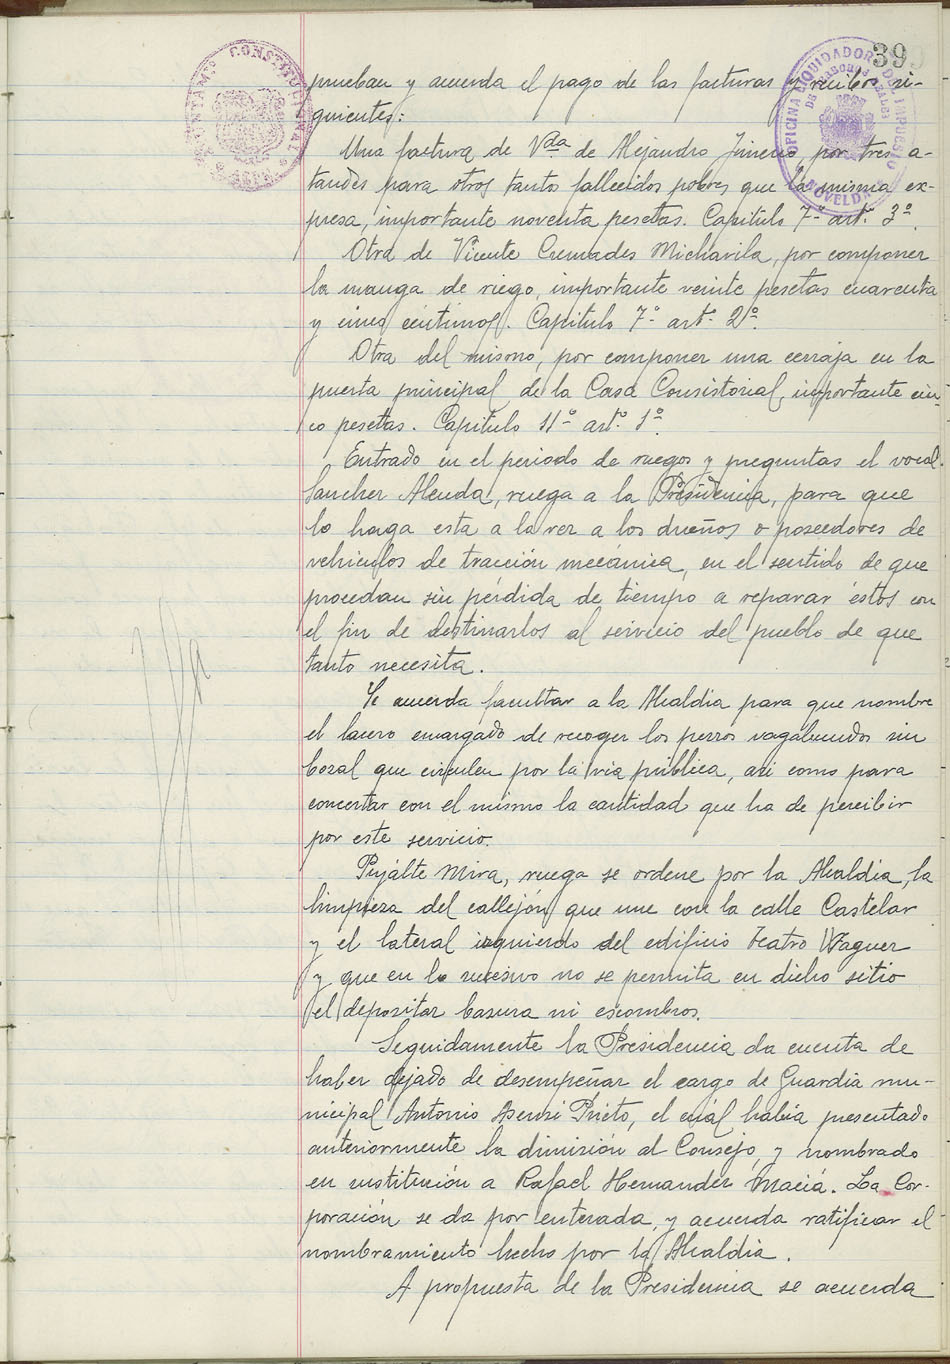 39
AYUNTAMTO CONSTITUCIONAL
OFICINA LIQUIDADORA DEL IMPUESTO
NOVELDA
prueban y acuerda el pago de las facturas y recibos si-
guientes:
Una factura de Vda de Alejandro Jimeno, por tres a-
taudes para otros tanto fallecidos pobres que la misma ex-
presa, importante noventa pesetas. Capitulo 7º artº 3º.
Otra de Vicente Cremades Micharila, por componer
la manga de riego, importante veinte pesetas cuarenta
y cinco céntimos. Capitulo 7º artº 2º.
Otra del mismo, por componer una cerraja en la
puerta principal de la Casa Consistorial, importante cin-
co pesetas. Capitulo 11º artº 1º.
Entrado en el periodo de ruegos y preguntas el vocal
Sanchez Alenda, ruega a la Presidencia, para que
lo haga esta a la vez a los dueños o poseedores de
vehiculos de tracción mecánica, en el sentido de que
procedan sin pérdida de tiempo a reparar éstos con
el fin de destinarlos al servicio del pueblo de que
tanto necesita.
Se acuerda facultar a la Alcaldia para que nombre
el lacero encargado de recoger los perros vagabundos sin
bozal que circulen por la via pública, asi como para
concertar con el mismo la cantidad que ha de percibir
por este servicio.
Pujálte Mira, ruega se ordene por la Alcaldia, la
limpieza del callejón que une con la calle Castelar
y el lateral izquierdo del edificio teatro Wagner
y que en lo sucesivo no se permita en dicho sitio
el depositar basura ni escombros.
Seguidamente la Presidencia da cuenta de
haber dejado de desempeñar el cargo de Guardia mu-
nicipal Antonio Asensi Prieto, el cuál había presentado
anteriormente la dimisión al Consejo, y nombrado
en sustitución a Rafael Hernandez Maciá. La Cor-
poración se da por enterada, y acuerda ratificar el
nombramiento hecho por la Alcaldia.
A propuesta de la Presidencia se acuerda